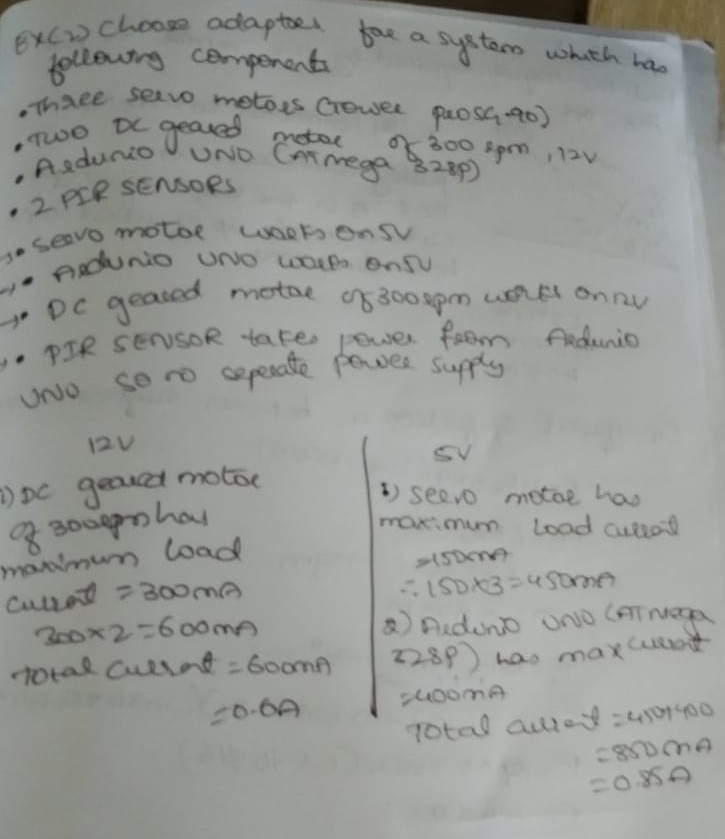 Ex(2) Choose adaptor for a system which has
following components
• Three servo motors (Tower pro SG-90)
• Two DC geared motor of 300 rpm, 12V
• Ardunio UNO (ATmega 328p)
• 2 PIR SENSORS
→• Servo motor works on 5V
→• Ardunio UNO works on 5V
→• DC geared motor of 300rpm works on 12V
→• PIR SENSOR takes power from Ardunio
UNO so no seperate power supply
12V
1) DC geared motor
of 300rpm has
maximum load
current = 300mA
300×2=600mA
Total current = 600mA
=0.6A
5V
1) Servo motor has
maximum load current
=150mA
∴ 150×3=450mA
2) Ardunio UNO (ATmega
328P) has max current
=400mA
Total current = 450+400
=850mA
=0.85A